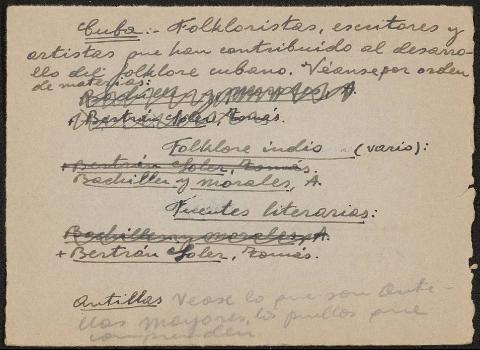 Cuba:- Folkloristas, escritores y
artistas que han contribuido al desarro-
llo del folklore cubano. Véanse por orden
de materias:
Bachiller y morales, A.
+ Bertrán Soler, Tomás.
Folklore indio (vario):
+ Bertrán Soler, Tomás.
Bachiller y morales, A.
Fuentes literarias:
Bachiller y morales, A.
+ Bertrán Soler, Tomás.
Antillas Vease lo que son Anti-
llas mayores, los pueblos que
comprenden.